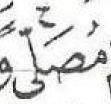 مُصَلًّى و